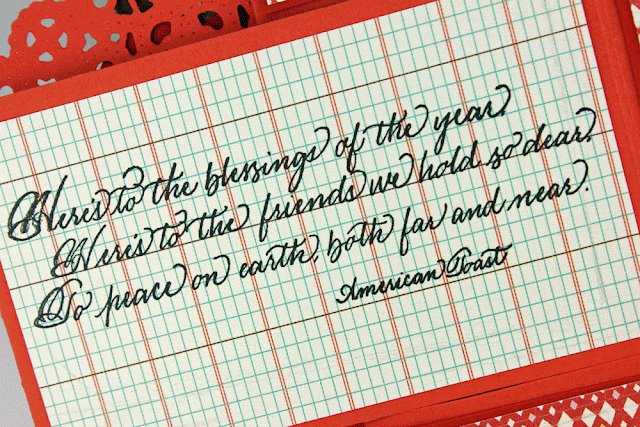 Here's to the blessings of the year,
Here's to the friends we hold so dear,
To peace on earth, both far and near.
American Toast